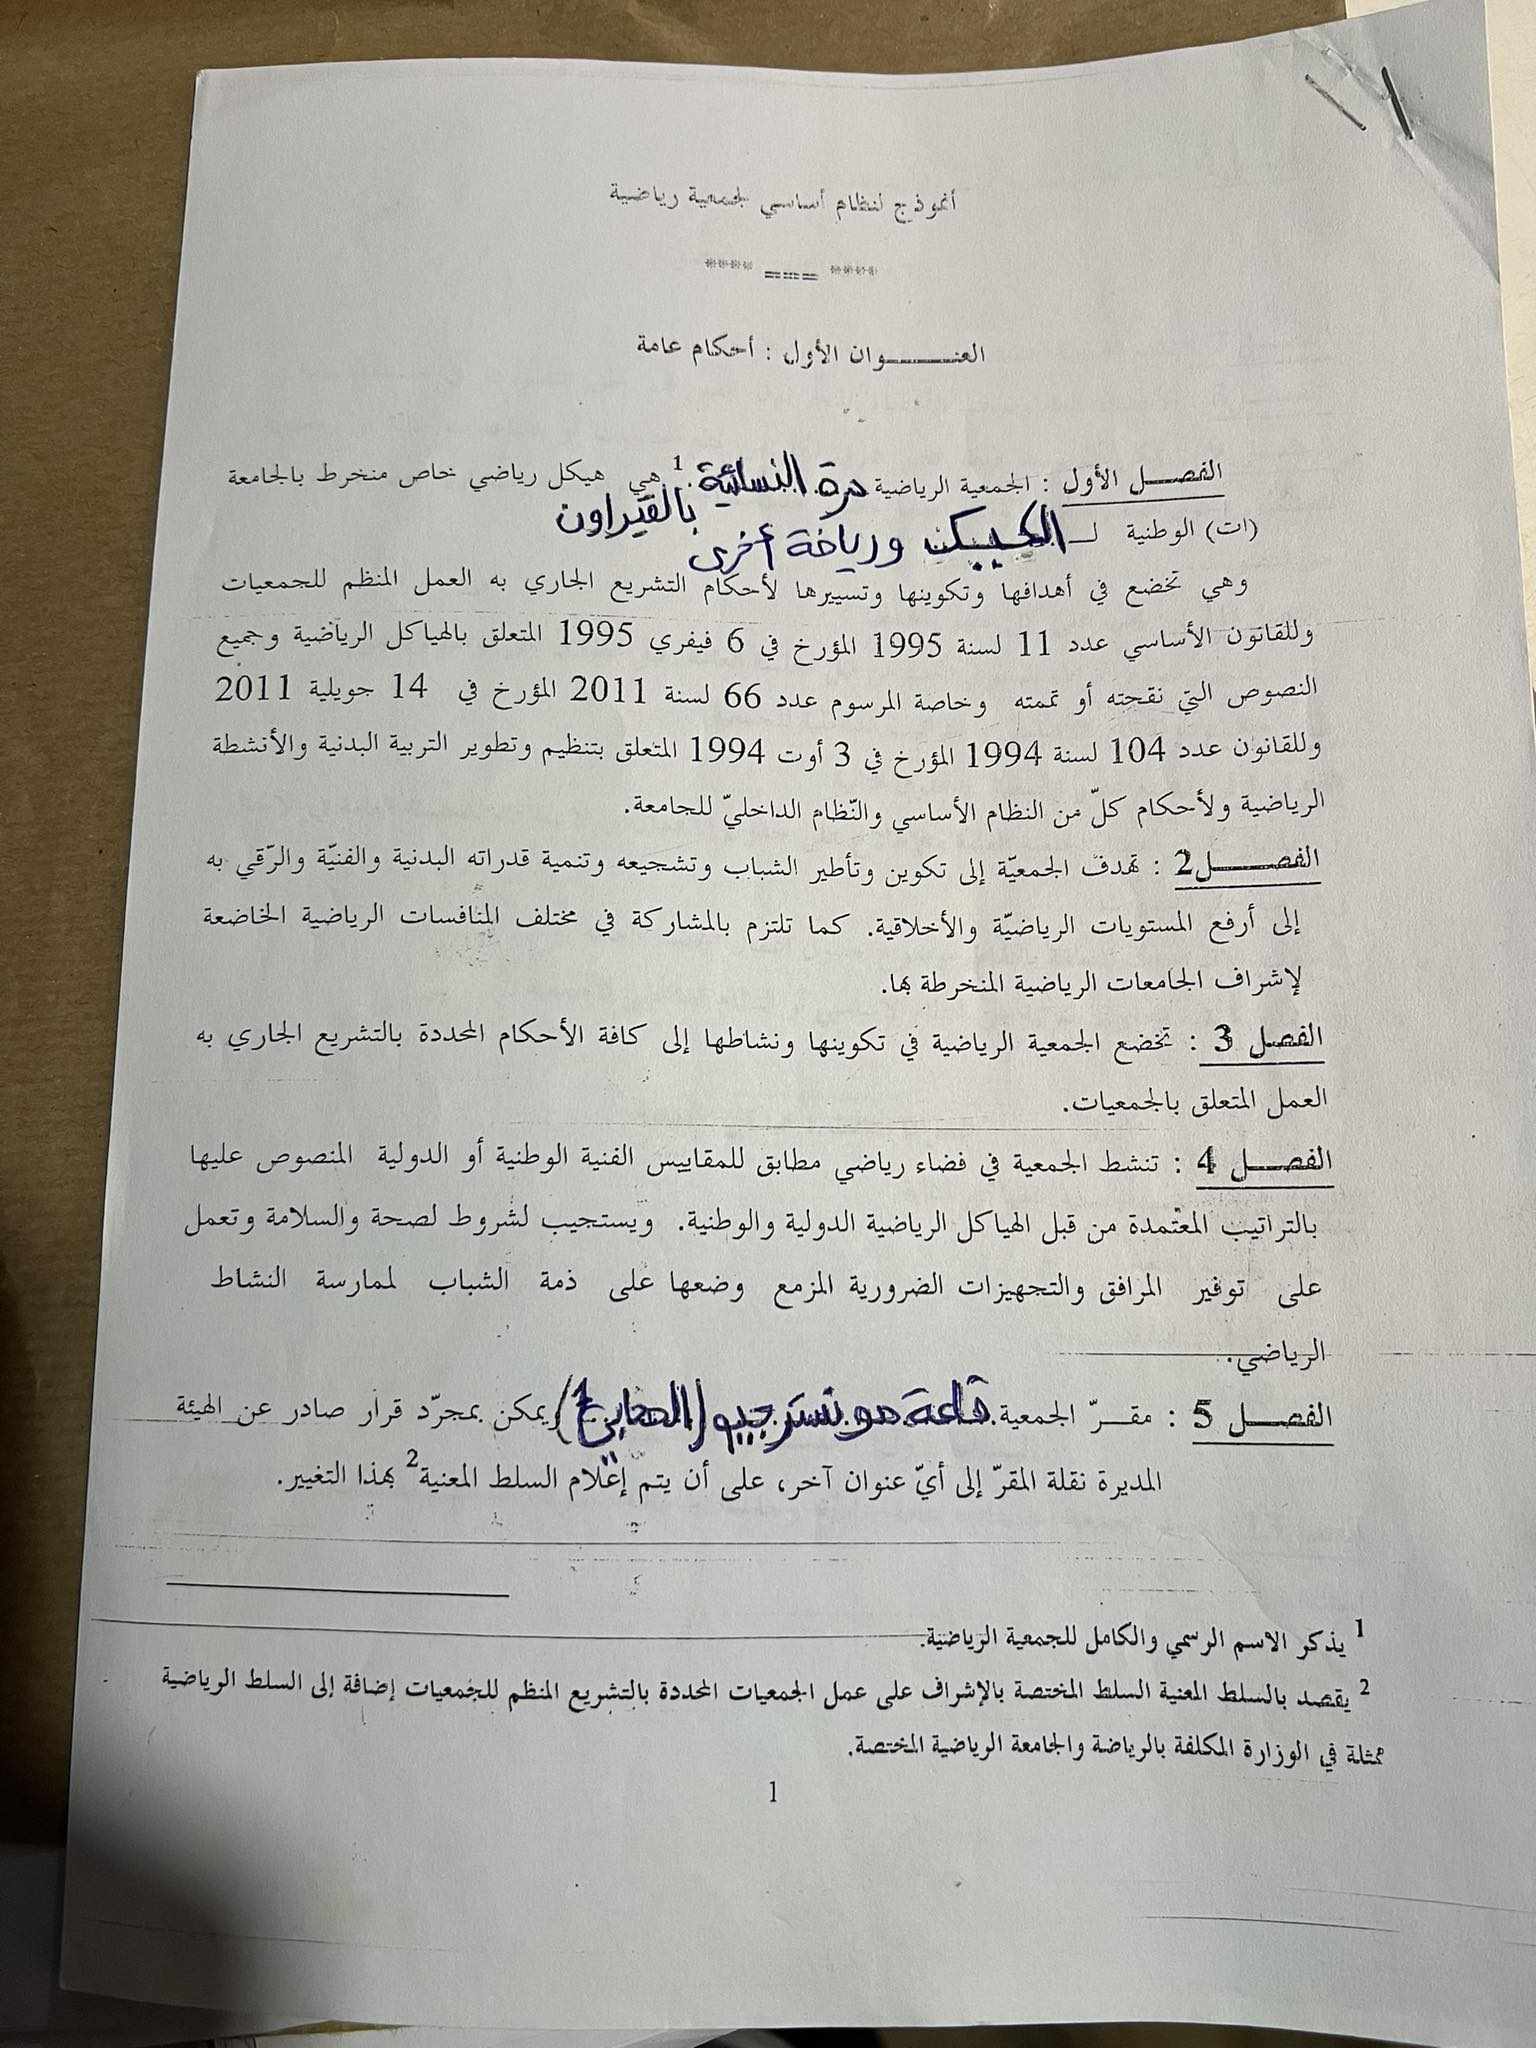 أنموذج لنظام أساسي لجمعية رياضية
**** === ****
العنـــــوان الأول : أحكام عامة
الفصـــل الأول : الجمعية الرياضية درة النسائية بالقيروان 1 هي هيكل رياضي خاص منخرط بالجامعة
(ات) الوطنية لـ ورياضة أخرى
وهي تخضع في أهدافها وتكوينها وتسييرها لأحكام التشريع الجاري به العمل المنظم للجمعيات
وللقانون الأساسي عدد 11 لسنة 1995 المؤرخ في 6 فيفري 1995 المتعلق بالهياكل الرياضية وجميع
النصوص التي نقحته أو تممته وخاصة المرسوم عدد 66 لسنة 2011 المؤرخ في 14 جويلية 2011
وللقانون عدد 104 لسنة 1994 المؤرخ في 3 أوت 1994 المتعلق بتنظيم وتطوير التربية البدنية والأنشطة
الرياضية ولأحكام كلّ من النظام الأساسي والنّظام الداخليّ للجامعة.
الفصــــل2 : تهدف الجمعيّة إلى تكوين وتأطير الشباب وتشجيعه وتنمية قدراته البدنية والفنيّة والرّقي به
إلى أرفع المستويات الرياضيّة والأخلاقية. كما تلتزم بالمشاركة في مختلف المنافسات الرياضية الخاضعة
لإشراف الجامعات الرياضية المنخرطة بها.
الفصل 3 : تخضع الجمعية الرياضية في تكوينها ونشاطها إلى كافة الأحكام المحددة بالتشريع الجاري به
العمل المتعلق بالجمعيات.
الفصــل 4 : تنشط الجمعية في فضاء رياضي مطابق للمقاييس الفنية الوطنية أو الدولية المنصوص عليها
بالتراتيب المعتمدة من قبل الهياكل الرياضية الدولية والوطنية. ويستجيب لشروط لصحة والسلامة وتعمل
على توفير المرافق والتجهيزات الضرورية المزمع وضعها على ذمة الشباب لممارسة النشاط
الرياضي.
الفصـــل 5 : مقــرّ الجمعية قاعة ويمكن بمجرّد قرار صادر عن الهيئة
المديرة نقلة المقرّ إلى أيّ عنوان آخر، على أن يتمّ إعلام السلط المعنية2 بهذا التغيير.
1 يذكر الاسم الرسمي والكامل للجمعية الرياضية.
2 يقصد بالسلط المعنية السلط المختصة بالإشراف على عمل الجمعيات المحددة بالتشريع المنظم للجمعيات إضافة إلى السلط الرياضية
ممثلة في الوزارة المكلفة بالرياضة والجامعة الرياضية المختصة.
1